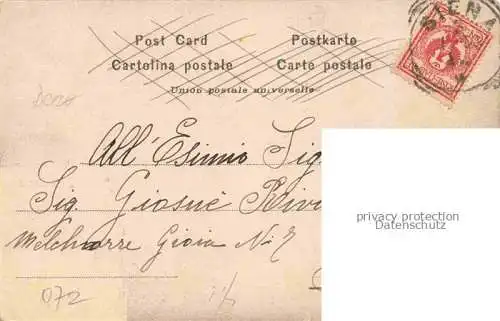 Post Card Postkarte
Cartolina postale Carte postale
Union postale universelle
SIENA
All'Esimio Sig.
Sig. Giosuè
Melchiorre Gioia N. 7
privacy protection
Datenschutz
072